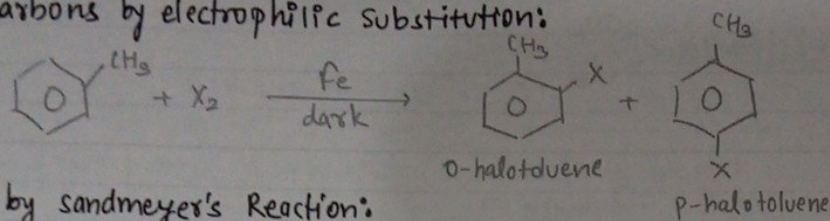 arbons by electrophilic substitution:
CH3
CH3
CH3
+ X2
Fe
dark
X
+
o-halotoluene
X
p-halotoluene
by sandmeyer's Reaction: